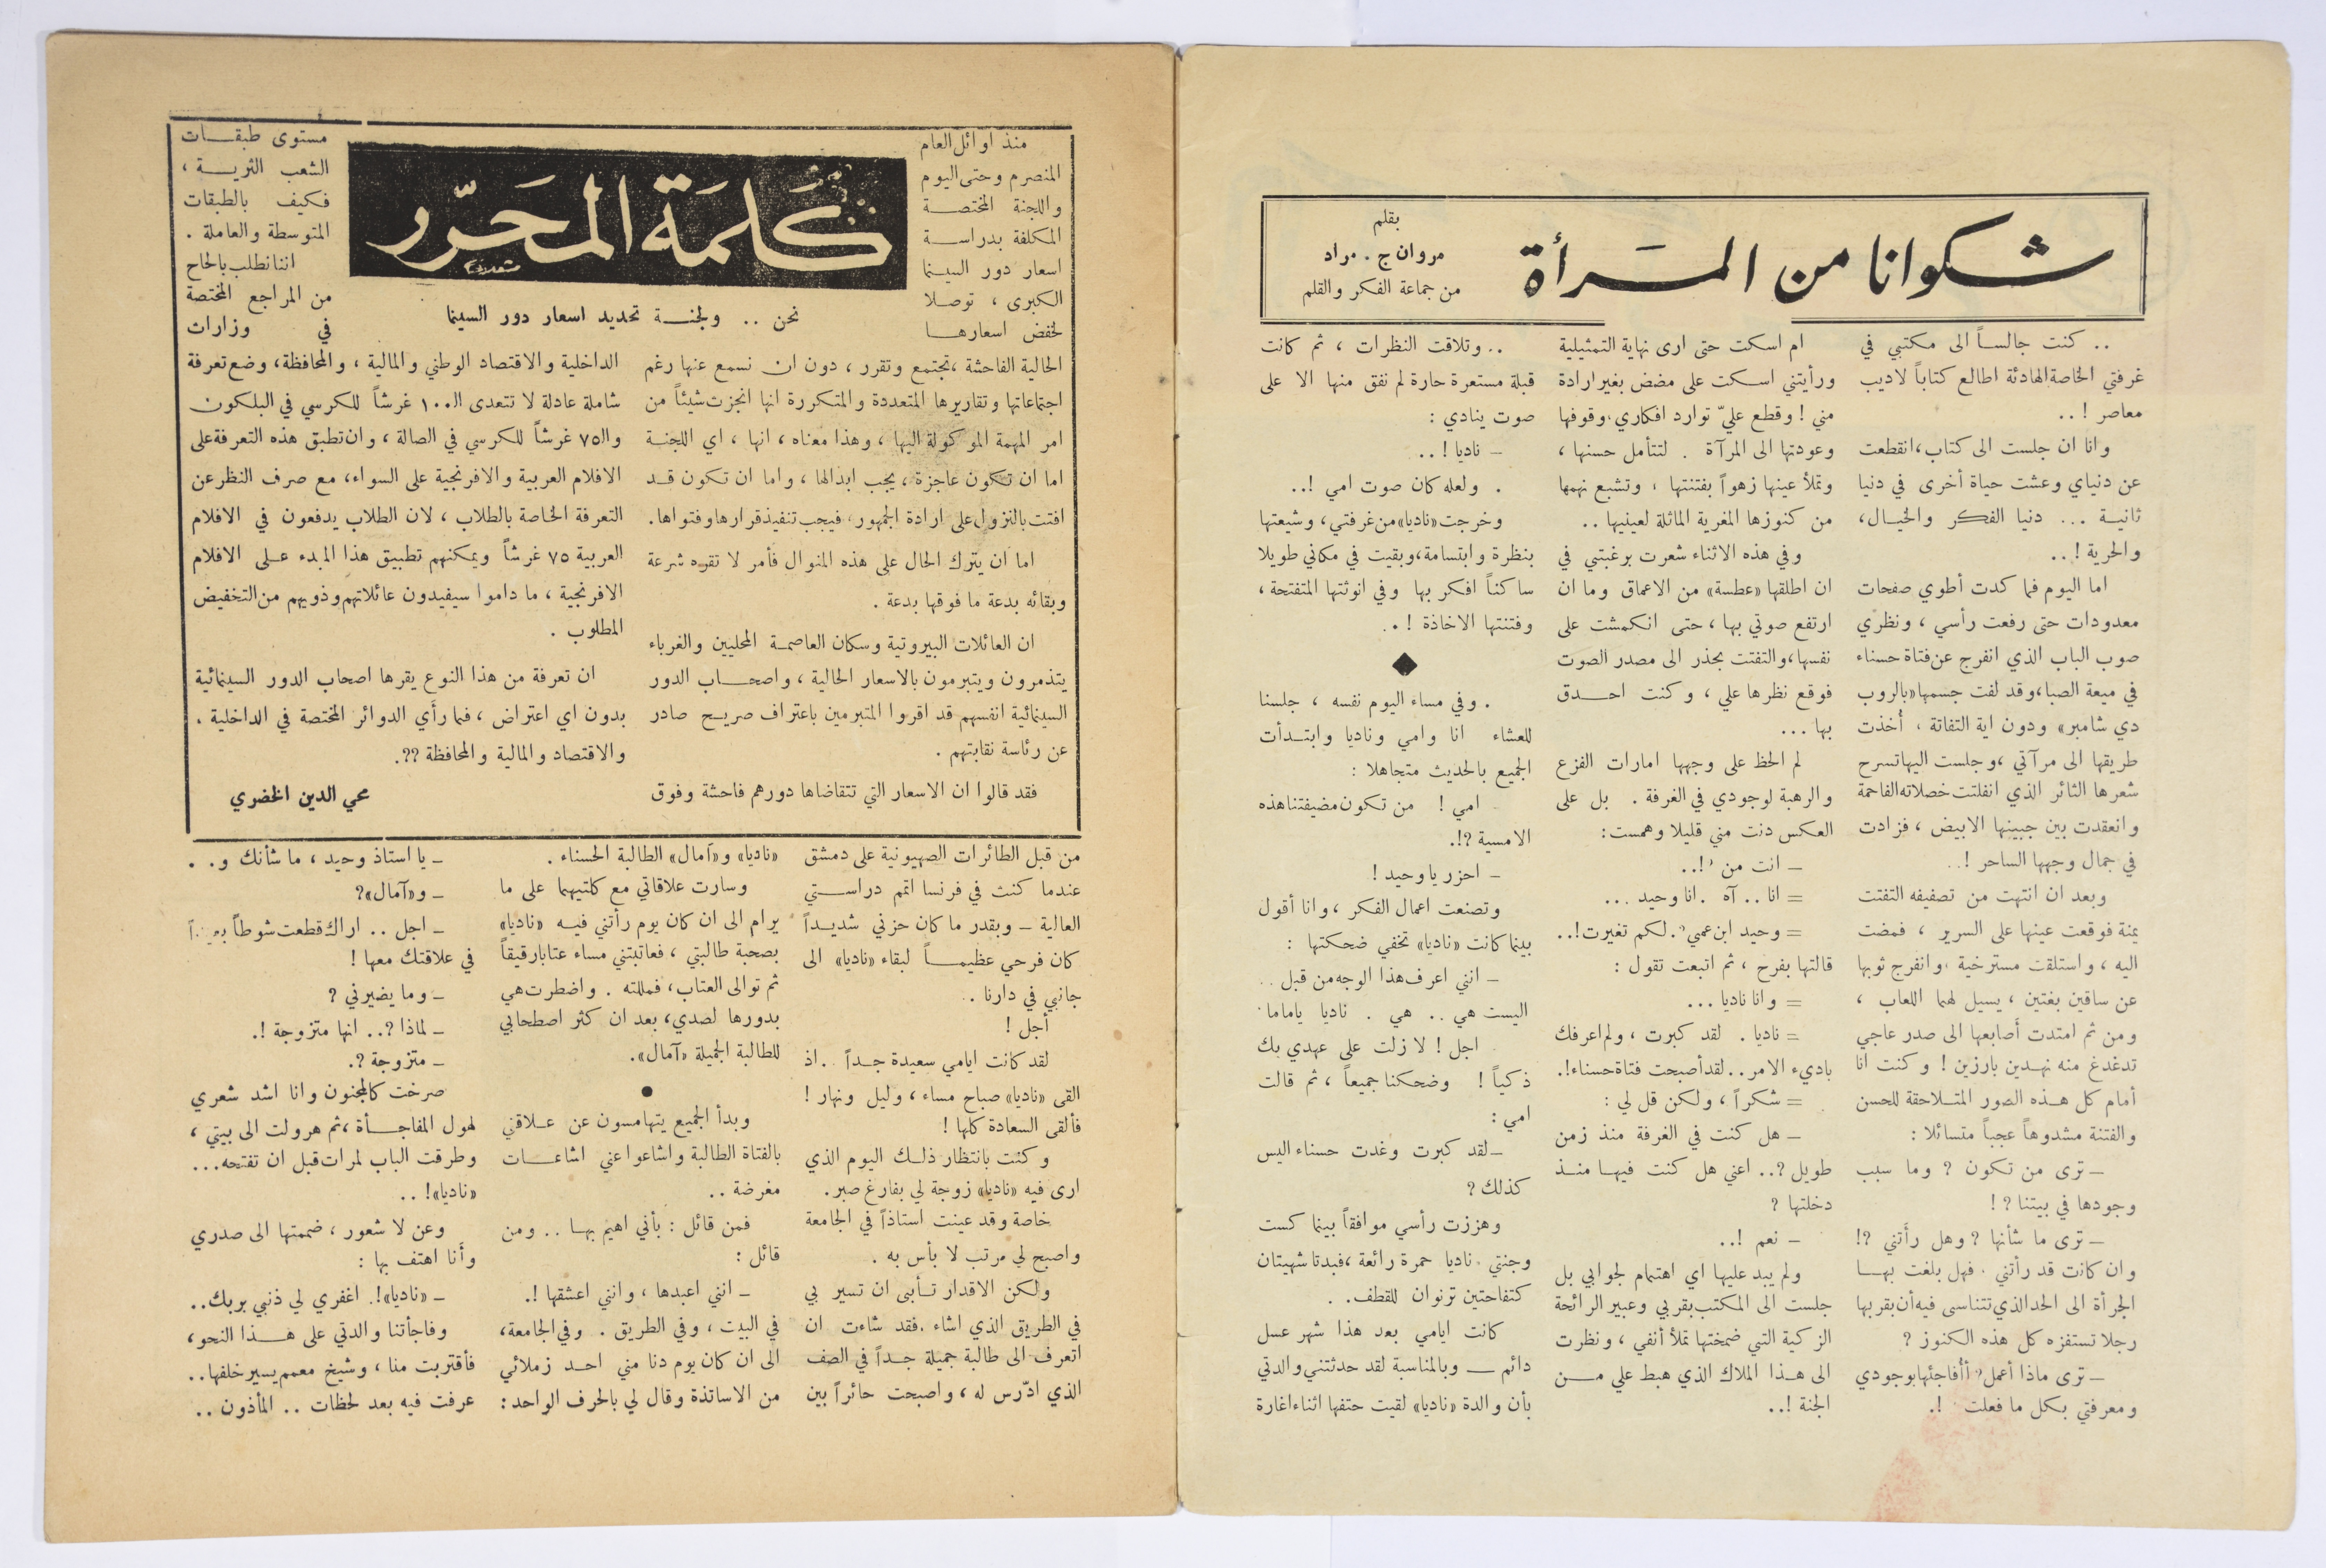 شكوانا من المرأة
بقلم
مروان ج. مراد
من جماعة الفكر والقلم
.. كنت جالساً الى مكتبي في
غرفتي الخاصة الهادئة اطالع كتاباً لاديب
معاصر ! ..
وانا ان جلست الى كتاب، انقطعت
عن دنياي وعشت حياة أخرى في دنيا
ثانية ... دنيا الفكر والخيال،
والحرية ! ..
اما اليوم فما كدت أطوي صفحات
معدودات حتى رفعت رأسي ، ونظري
صوب الباب الذي انفرج عن فتاة حسناء
في ميعة الصبا، وقد لفت جسمها «بالروب
دي شامبر» ودون اية التفاتة ، أخذت
طريقها الى مرآتي ، وجلست اليها تسرح
شعرها الثائر الذي انفلتت خصلاته الفاحمة
وانعقدت بين جبينها الابيض ، فزادت
في جمال وجهها الساحر ! ..
وبعد ان انتهت من تصفيفه التفتت
يمنة فوقعت عينها على السرير ، فمضت
اليه ، واستلقت مسترخية ، وانفرج ثوبها
عن ساقين بغتين ، يسيل لهما اللعاب ،
ومن ثم امتدت أصابعها الى صدر عاجي
تدغدغ منه نهدين بارزين ! وكنت انا
أمام كل هذه الصور المتلاحقة للحسن
والفتنة مشدوهاً عجباً متسائلا :
ــ ترى من تكون ? وما سبب
وجودها في بيتنا ? !
ــ ترى ما شأنها ? وهل رأتني ?!
وان كانت قد رأتني . فهل بلغت بها
الجرأة الى الحد الذي تتناسى فيه أن بقربها
رجلا تستفزه كل هذه الكنوز ?
ــ ترى ماذا أعمل ? أأفاجئها بوجودي
ومعرفتي بكل ما فعلت !.
ام اسكت حتى ارى نهاية التمثيلية
ورأيتني اسكت على مضض بغير ارادة
مني ! وقطع عليّ توارد افكاري، وقوفها
وعودتها الى المرآة . لتتأمل حسنها ،
وتملأ عينها زهواً بفتنتها ، وتشبع نهمها
من كنوزها المغرية الماثلة لعينيها ..
وفي هذه الاثناء شعرت برغبتي في
ان اطلقها «عطسة» من الاعماق وما ان
ارتفع صوتي بها ، حتى انكمشت على
نفسها، والتفتت بحذر الى مصدر الصوت
فوقع نظرها علي ، وكنت احدق
بها ...
لم الحظ على وجهها امارات الفزع
والرهبة لوجودي في الغرفة . بل على
العكس دنت مني قليلا وهمست :
ــ انت من ?!..
= انا .. آه .انا وحيد ...
= وحيد ابن عمي ?. لكم تغيرت !..
قالتها بفرح ، ثم اتبعت تقول :
= وانا ناديا ...
= ناديا . لقد كبرت ، ولم اعرفك
باديء الامر .. لقد أصبحت فتاة حسناء !.
= شكراً ، ولكن قل لي :
ــ هل كنت في الغرفة منذ زمن
طويل ?.. اعني هل كنت فيها منذ
دخلتها ?
ــ نعم !..
ولم يبد عليها اي اهتمام لجوابي بل
جلست الى المكتب بقربي وعبير الرائحة
الزكية التي ضمختها تملأ أنفي ، ونظرت
الى هذا الملاك الذي هبط علي من
الجنة !..
.. وتلاقت النظرات ، ثم كانت
قبلة مستعرة حارة لم نفق منها الا على
صوت ينادي :
ــ ناديا ! ..
. ولعله كان صوت امي !..
وخرجت «ناديا» من غرفتي، وشيعتها
بنظرة وابتسامة، وبقيت في مكاني طويلا
ساكناً افكر بها وفي انوثتها المتفتحة ،
وفتنتها الاخاذة ! ..
. وفي مساء اليوم نفسه ، جلسنا
للعشاء انا وامي وناديا وابتدأت
الجميع بالحديث متجاهلا :
ــ امي ! من تكون مضيفتنا هذه
الامسية ?!.
ــ احزر يا وحيد !
وتصنعت اعمال الفكر ، وانا أقول
بينما كانت «ناديا» تخفي ضحكتها :
ــ انني اعرف هذا الوجه من قبل ..
اليست هي .. هي . ناديا ياماما .
اجل ! لا زلت على عهدي بك
ذكياً ! وضحكنا جميعاً ، ثم قالت
امي :
ــ لقد كبرت وغدت حسناء اليس
كذلك ?
وهززت رأسي موافقاً بينما كست
وجنتي ناديا حمرة رائعة ، فبدتا شهيتان
كتفاحتين ترنوان للقطف . .
كانت ايامي بعد هذا شهر عسل
دائم ــ وبالمناسبة لقد حدثتني والدتي
بأن والدة «ناديا» لقيت حتفها اثناء اغارة
كلمة المحرر
نحن .. ولجنة تحديد اسعار دور السينما
منذ اوائل العام
المنصرم وحتى اليوم
واللجنة المختصة
المكلفة بدراسة
اسعار دور السينما
الكبرى ، توصلا
لخفض اسعارها
الحالية الفاحشة ، تجتمع وتقرر ، دون ان نسمع عنها رغم
اجتماعاتها وتقاريرها المتعددة والمتكررة انها انجزت شيئاً من
امر المهمة الموكولة اليها ، وهذا معناه ، انها ، اي اللجنة
اما ان تكون عاجزة ، يجب ابدالها ، واما ان تكون قد
افتت بالنزول على ارادة الجمهور ، فيجب تنفيذ قرارها وفتواها .
اما ان يترك الحال على هذه المنوال فأمر لا تقره شرعة
وبقائه بدعة ما فوقها بدعة .
ان العائلات البيروتية وسكان العاصمة المحليين والغرباء
يتذمرون ويتبرمون بالاسعار الحالية ، واصحاب الدور
السينمائية انفسهم قد اقروا المتبرمين باعتراف صريح صادر
عن رئاسة نقابتهم .
فقد قالوا ان الاسعار التي تتقاضاها دورهم فاحشة وفوق
مستوى طبقات
الشعب الثرية ،
فكيف بالطبقات
المتوسطة والعاملة .
اننا نطلب بالحاح
من المراجع المختصة
في وزارات
الداخلية والاقتصاد الوطني والمالية ، والمحافظة، وضع تعرفة
شاملة عادلة لا تتعدى الـ١٠٠ غرشاً للكرسي في البلكون
والـ٧٥ غرشاً للكرسي في الصالة ، وان تطبق هذه التعرفة على
الافلام العربية والافرنجية على السواء، مع صرف النظر عن
التعرفة الخاصة بالطلاب ، لان الطلاب يدفعون في الافلام
العربية ٧٥ غرشاً ويمكنهم تطبيق هذا المبدء على الافلام
الافرنجية ، ما داموا سيفيدون عائلاتهم وذويهم من التخفيض
المطلوب .
ان تعرفة من هذا النوع يقرها اصحاب الدور السينمائية
بدون اي اعتراض ، فما رأي الدوائر المختصة في الداخلية .
والاقتصاد والمالية والمحافظة ??.
محي الدين الخضري
من قبل الطائرات الصهيونية على دمشق
عندما كنت في فرنسا اتمم دراستي
العالية ــ وبقدر ما كان حزني شديداً
كان فرحي عظيماً لبقاء «ناديا» الى
جانبي في دارنا ..
أجل !
لقد كانت ايامي سعيدة جداً .. اذ
القى «ناديا» صباح مساء ، وليل ونهار !
فألقى السعادة كلها !
وكنت بانتظار ذلك اليوم الذي
ارى فيه «ناديا» زوجة لي بفارغ صبر .
خاصة وقد عينت استاذاً في الجامعة
واصبح لي مرتب لا بأس به .
ولكن الاقدار تأبى ان تسير بي
في الطريق الذي اشاء . فقد شاءت ان
اتعرف الى طالبة جميلة جداً في الصف
الذي ادّرس له ، واصبحت حائراً بين
«ناديا» و«آمال» الطالبة الحسناء .
وسارت علاقاتي مع كلتيهما على ما
يرام الى ان كان يوم رأتني فيه «ناديا»
بصحبة طالبتي ، فعاتبتني مساء عتابا رقيقاً
ثم توالى العتاب، فمللته . واضطرت هي
بدورها لصدي، بعد ان كثر اصطحابي
للطالبة الجميلة «آمال» .
وبدأ الجميع يتهامسون عن علاقتي
بالفتاة الطالبة واشاعوا عني اشاعات
مغرضة ..
فمن قائل : بأني اهيم بها .. ومن
قائل :
ــ انني اعبدها ، وانني اعشقها !.
في البيت ، وفي الطريق . وفي الجامعة،
الى ان كان يوم دنا مني احد زملائي
من الاساتذة وقال لي بالحرف الواحد :
ــ يا استاذ وحيد ، ما شأنك و. .
ــ و«آمال»?
ــ اجل .. اراك قطعت شوطاً بعيداً
في علاقتك معها !
ــ وما يضيرني ?
ــ لماذا ?.. انها متزوجة !.
ــ متزوجة ?.
صرخت كالمجنون وانا اشد شعري
لهول المفاجأة ، ثم هرولت الى بيتي ،
وطرقت الباب لمرات قبل ان تفتحه ...
«ناديا»! ..
وعن لا شعور ، ضممتها الى صدري
وأنا اهتف بها :
ــ «ناديا»!. اغفري لي ذنبي بربك ..
وفاجأتنا والدتي على هذا النحو ،
فأقتربت منا ، وشيخ معمم يسير خلفها ..
عرفت فيه بعد لحظات .. المأذون ..